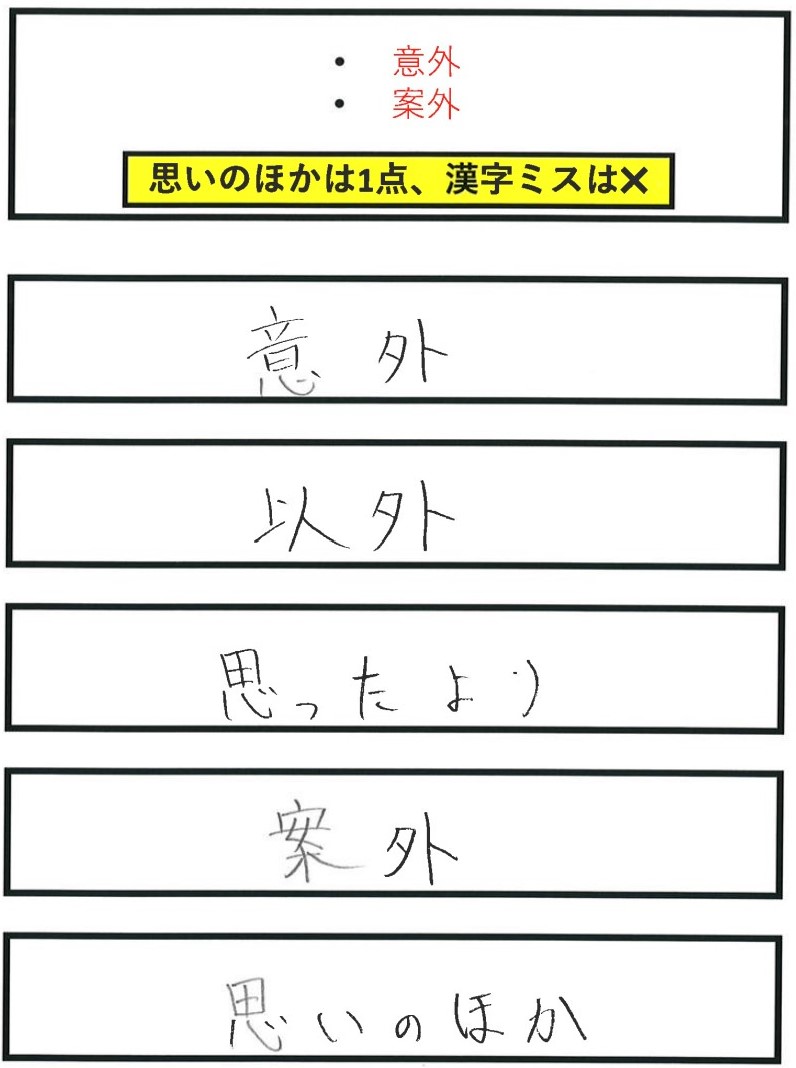 • 意外
• 案外
思いのほかは1点、漢字ミスは✕
意外
以外
思ったよう
案外
思いのほか